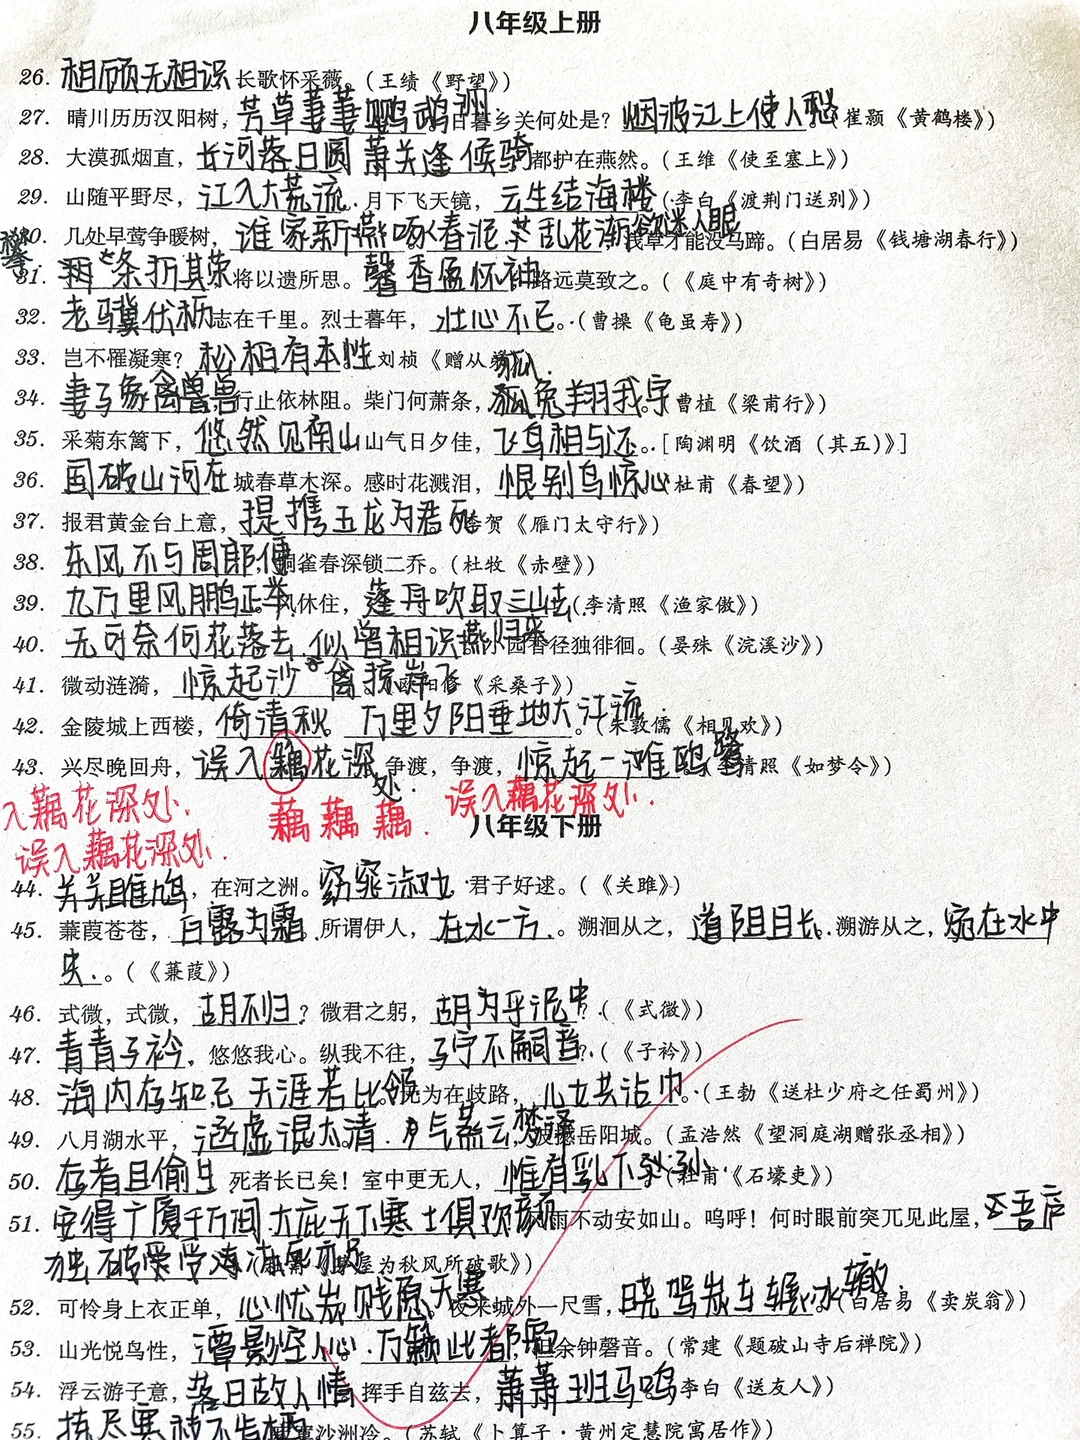 八年级上册
26. 相顾无相识 长歌怀采薇。(王绩《野望》)
27. 晴川历历汉阳树，芳草萋萋鹦鹉洲。日暮乡关何处是？烟波江上使人愁。(崔颢《黄鹤楼》)
28. 大漠孤烟直，长河落日圆 萧关逢候骑 都护在燕然。(王维《使至塞上》)
29. 山随平野尽，江入大荒流. 月下飞天镜，云生结海楼 (李白《渡荆门送别》)
30. 几处早莺争暖树，谁家新燕啄春泥. 乱花渐欲迷人眼 浅草才能没马蹄。(白居易《钱塘湖春行》)
31. 条折其荣 将以遗所思。馨香盈怀袖 路远莫致之。(《庭中有奇树》)
32. 老骥伏枥 志在千里。烈士暮年，壮心不已。(曹操《龟虽寿》)
33. 岂不罹凝寒？松柏有本性 刘桢《赠从弟 狐.
34. 妻子象禽兽 行止依林阻。柴门何萧条，狐兔翔我宇 曹植《梁甫行》)
35. 采菊东篱下，悠然见南山 山气日夕佳，飞鸟相与还。[陶渊明《饮酒（其五）》]
36. 国破山河在 城春草木深。感时花溅泪，恨别鸟惊心 杜甫《春望》)
37. 报君黄金台上意，提携玉龙为君死 李贺《雁门太守行》)
38. 东风不与周郎便 铜雀春深锁二乔。(杜牧《赤壁》)
39. 九万里风鹏正举。风休住，蓬舟吹取三山去 (李清照《渔家傲》)
40. 无可奈何花落去. 似曾相识燕归来。小园香径独徘徊。(晏殊《浣溪沙》)
41. 微动涟漪，惊起沙禽掠岸飞 欧阳修《采桑子》)
42. 金陵城上西楼，倚清秋。万里夕阳垂地大江流。(朱敦儒《相见欢》)
43. 兴尽晚回舟，误入藕花深处. 争渡，争渡，惊起一滩鸥鹭 李清照《如梦令》)
入藕花深处. 藕 藕 藕. 误入藕花深处.
误入藕花深处.
八年级下册
44. 关关雎鸠，在河之洲。窈窕淑女 君子好逑。(《关雎》)
45. 蒹葭苍苍，白露为霜. 所谓伊人，在水一方.。溯洄从之，道阻且长. 溯游从之，宛在水中
央.。(《蒹葭》)
46. 式微，式微，胡不归？微君之躬，胡为乎泥中？(《式微》)
47. 青青子衿，悠悠我心。纵我不往，子宁不嗣音？(《子衿》)
48. 海内存知己 天涯若比邻。无为在歧路，儿女共沾巾。(王勃《送杜少府之任蜀州》)
49. 八月湖水平，涵虚混太清. 气蒸云梦泽 波撼岳阳城。(孟浩然《望洞庭湖赠张丞相》)
50. 存者且偷生 死者长已矣！室中更无人，惟有乳下孙. (杜甫《石壕吏》)
51. 安得广厦千万间. 大庇天下寒士俱欢颜 风雨不动安如山。呜呼！何时眼前突兀见此屋，吾庐
独破受冻死亦足 (杜甫《茅屋为秋风所破歌》)
52. 可怜身上衣正单，心忧炭贱愿天寒 夜来城外一尺雪，晓驾炭车辗冰辙。(白居易《卖炭翁》)
53. 山光悦鸟性，潭影空人心. 万籁此都寂 但余钟磬音。(常建《题破山寺后禅院》)
54. 浮云游子意，落日故人情 挥手自兹去，萧萧班马鸣 李白《送友人》)
55. 拣尽寒枝不肯栖 寂寞沙洲冷。(苏轼《卜算子·黄州定慧院寓居作》)